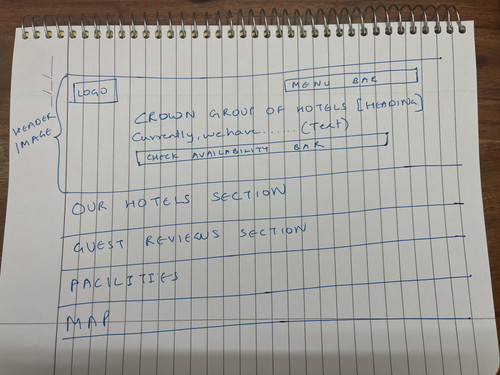 MENU BAR
LOGO
CROWN GROUP OF HOTELS [HEADING]
Currently, we have ...... (Text)
CHECK AVAILABILITY BAR
HEADER
IMAGE
OUR HOTELS SECTION
GUEST REVIEWS SECTION
FACILITIES
MAP